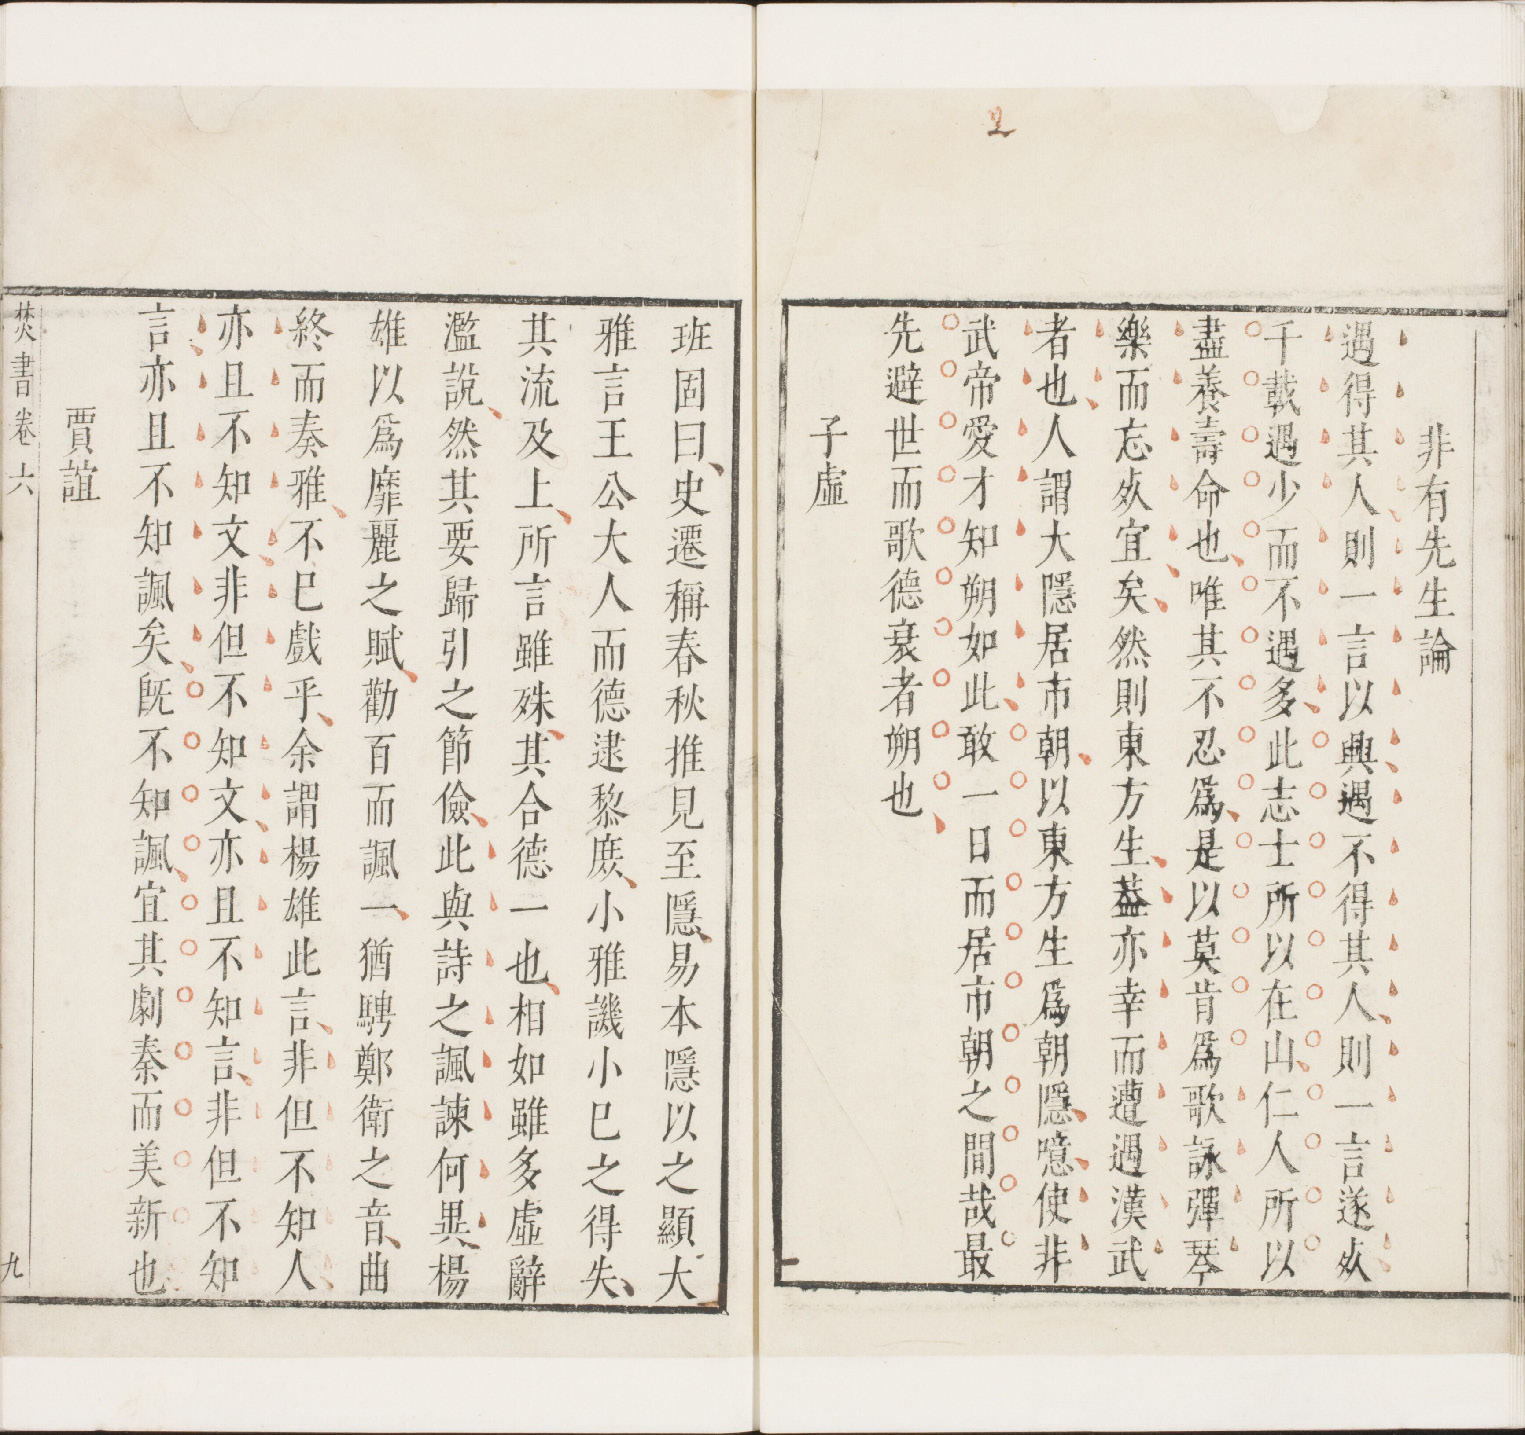 2
非有先生論
遇得其人則一言以興遇不得其人則一言遂㱔
千載遇少而不遇多此志士所以在山仁人所以
盡養壽命也唯其不忍爲是以莫肯爲歌詠彈琴
樂而忘㱔宜矣然則東方生葢亦幸而遭遇漢武
者也人謂大隱居市朝以東方生爲朝隱噫使非
武帝愛才知朔如此敢一日而居市朝之間哉最
先避世而歌德衰者朔也
子虛
班固曰史遷稱春秋推見至隱易本隱以之顯大
雅言王公大人而德逮黎庶小雅譏小巳之得失
其流及上所言雖殊其合德一也相如雖多虛辭
濫說然其要歸引之節儉此與詩之諷諫何異楊
雄以爲靡麗之賦勸百而諷一猶騁鄭衛之音曲
終而奏雅不巳戲乎余謂楊雄此言非但不知人
亦且不知文非但不知文亦且不知言非但不知
言亦且不知諷矣旣不知諷宜其劇秦而美新也
賈誼
焚書卷六
九